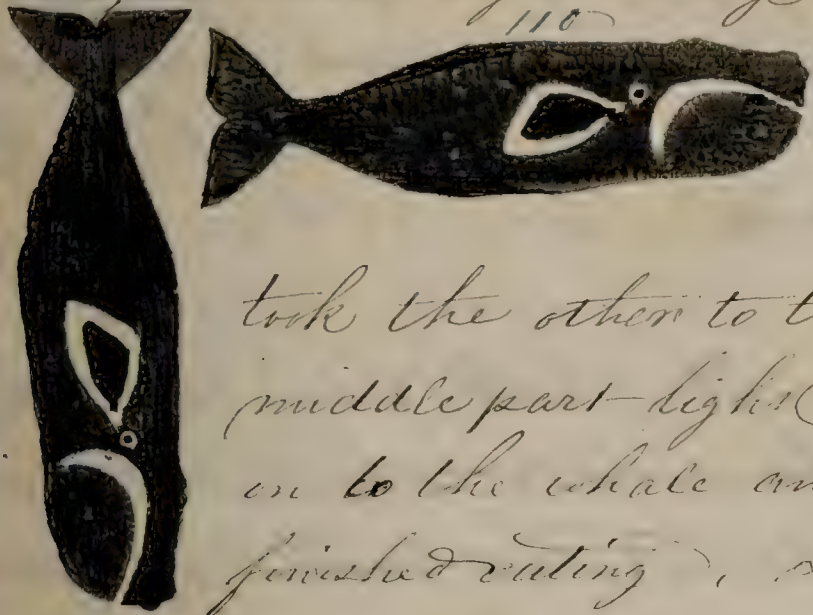 110
took the other to t
middle part light
on to the whale an
finished cuting,